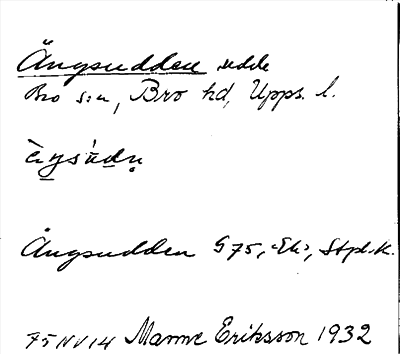 Ängsudden udde
Bro s:n, Bro hd, Upps. l.
Ängsudden G 75, "Ek", Stpl.k.
75 NV 14 Manne Eriksson 1932